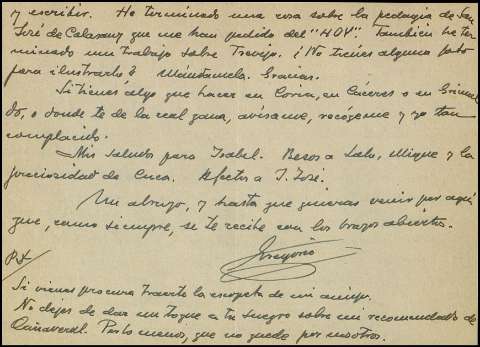 y escribir. He terminado una cosa sobre la pedagogía de San
José de Calasanz que me han pedido del "HOY". También he ter-
minado un trabajo sobre Trevejo. ¿No tienes alguna foto
para ilustrarlo? Mándamela. Gracias.
Si tienes algo que hacer en Coria, en Cáceres o en Grimal
do, o donde te de la real gana, avísame, recógeme y yo tan
complacido.
Mis saludos para Isabel. Besos a Lalo, Mique y la
preciosidad de Cuca. Afectos a J. José.
Un abrazo, y hasta que quieras venir por aquí
que, como siempre, se te recibe con los brazos abiertos.
Gregorio
PD/
Si vienes procura traerte la escopeta de mi amigo.
No dejes de dar un toque a tu suegro sobre mi recomendado de
Cañaveral. Por lo menos, que no quede por nosotros.